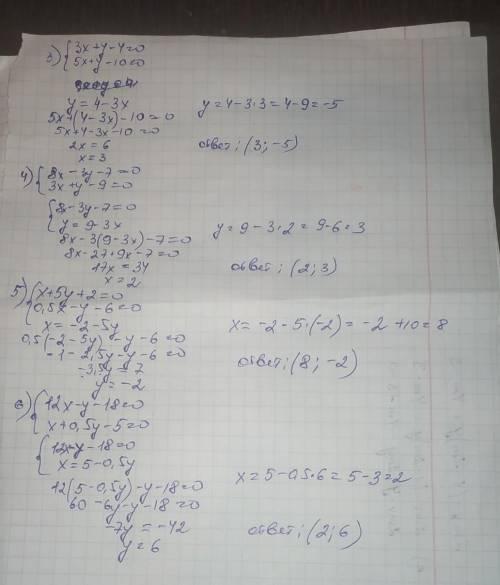 3) { 3x+y-4=0
5x+y-10=0
y=4-3x
y=4-3·3=4-9=-5
5x+(4-3x)-10=0
5x+4-3x-10=0
2x=6
x=3
ответ; (3; -5)
4) { 8x-3y-7=0
3x+y-9=0
{ 8x-3y-7=0
y=9-3x
y=9-3·2=9-6=3
8x-3(9-3x)-7=0
8x-27+9x-7=0
17x=34
x=2
ответ; (2; 3)
5) { x+5y+2=0
0,5x-y-6=0
x=-2-5y
x=-2-5·(-2)=-2+10=8
0,5(-2-5y)-y-6=0
-1-2,5y-y-6=0
-3,5y=7
y=-2
ответ; (8; -2)
6) { 12x-y-18=0
x+0,5y-5=0
{ 12x-y-18=0
x=5-0,5y
x=5-0,5·6=5-3=2
12(5-0,5y)-y-18=0
60-6y-y-18=0
-7y=-42
y=6
ответ; (2; 6)